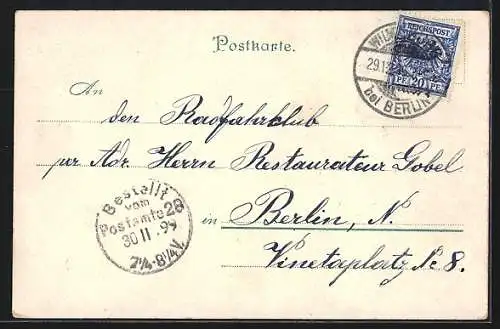 Postkarte.
REICHSPOST
20 PF.
29.11
bei BERLIN
An
den Radfahrklub
pr Adr. Herrn Restaurateur Gobel
in Berlin, N.
Vinetaplatz № 8.
Bestellt
vom
Postamte 28
30 11 99
7¼-8¼V.